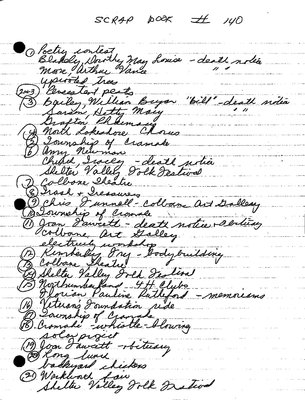 SCRAP BOOK # 140
① Poetry contest
Blakely, Dorothy May Louise - death notice
More, Arthur Vance " "
uprooted tree
2→3 "Persistent pests
③ Bailey, William Bryan "Bill" - death notice
Garden, Betty Mary " "
Grafton
④ North Lakeshore Chorus
⑤ Township of Cramahe
⑥ Amy Newman
Chard, Tracey - death notice
Shelter Valley Folk Festival
⑦ Colborne Theatre
⑧ Trash & Treasures
⑨ Chris Fennell - Colborne Art Gallery
⑩ Township of Cramahe
⑪ Joan Fawcett - death notice + obituary
Colborne Art Gallery
electricity workshop
⑫ Kimberley Fry - bodybuilding
⑬ Colborne Theatre
⑭ Shelter Valley Folk Festival
⑮ Northumberland - 4H Clubs
Florian Pauline Rutherford - memoriams
⑯ Veterans Foundation ride
⑰ Township of Cramahe
⑱ Cramahe - whistle-blowing
solar project
⑲ Joan Fawcett - obituary
⑳ Kong
backyard chickens
㉑ fair
Shelter Valley Folk Festival